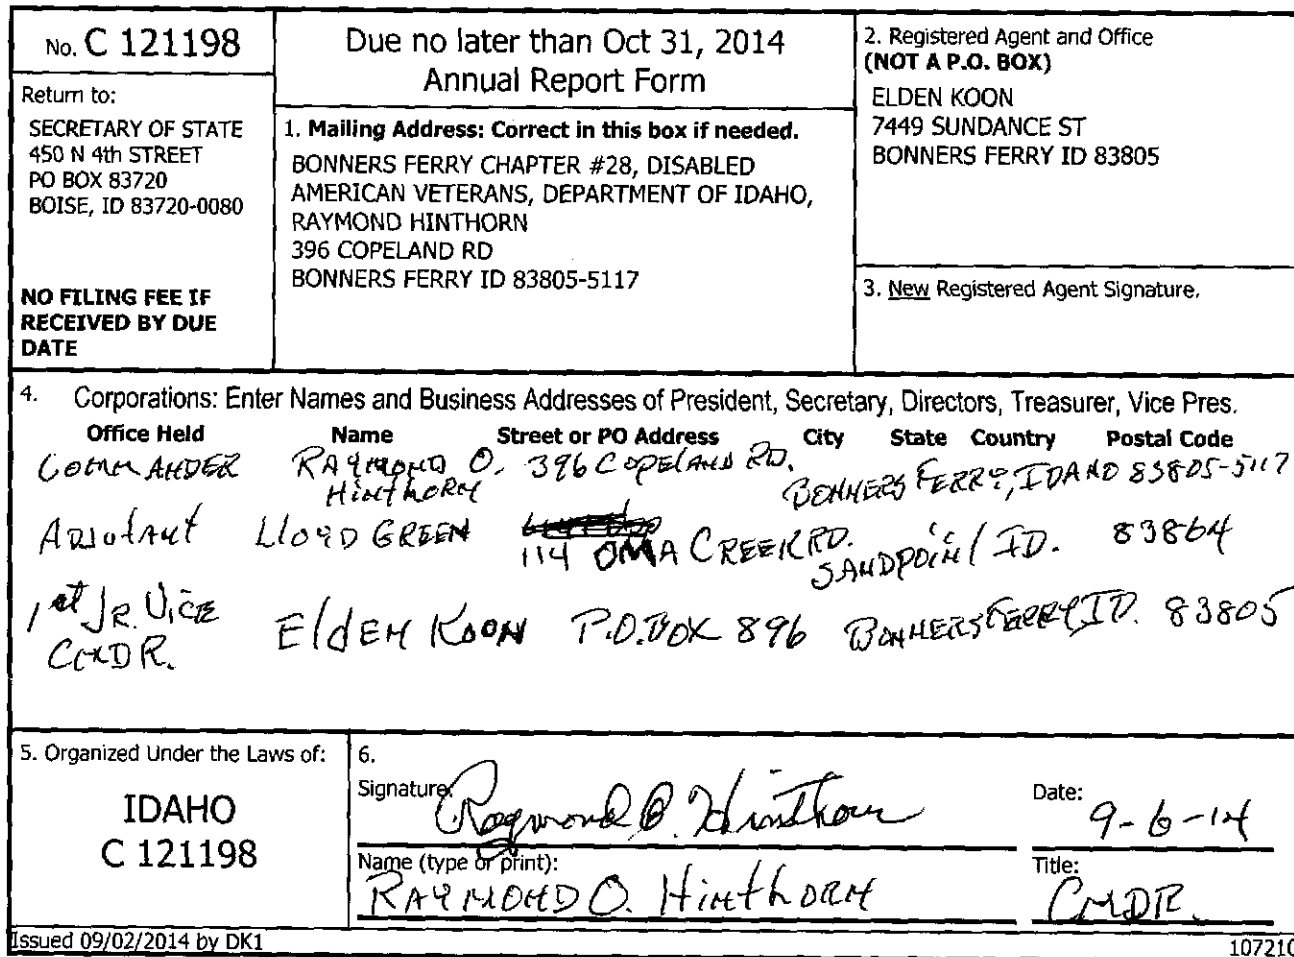 No. C 121198
Return to:
SECRETARY OF STATE
450 N 4th STREET
PO BOX 83720
BOISE, ID 83720-0080
NO FILING FEE IF
RECEIVED BY DUE
DATE
Due no later than Oct 31, 2014
Annual Report Form
1. Mailing Address: Correct in this box if needed.
BONNERS FERRY CHAPTER #28, DISABLED
AMERICAN VETERANS, DEPARTMENT OF IDAHO,
RAYMOND HINTHORN
396 COPELAND RD
BONNERS FERRY ID 83805-5117
2. Registered Agent and Office
(NOT A P.O. BOX)
ELDEN KOON
7449 SUNDANCE ST
BONNERS FERRY ID 83805
3. New Registered Agent Signature.
4. Corporations: Enter Names and Business Addresses of President, Secretary, Directors, Treasurer, Vice Pres.
Office Held Name Street or PO Address City State Country Postal Code
COMMANDER RAYMOND O. HINTHORN 396 COPELAND RD. BONNERS FERRY, IDAHO 83805-5117
ADJUTANT LLOYD GREEN 114 OMA CREEK RD. SANDPOINT ID. 83864
1st JR. VICE CMDR. ELDEN KOON P.O. BOX 896 BONNERS FERRY, ID. 83805
5. Organized Under the Laws of:
IDAHO
C 121198
6.
Signature: Raymond O. Hinthorn
Date: 9-6-14
Name (type or print):
RAYMOND O. HINTHORN
Title:
CMDR.
Issued 09/02/2014 by DK1
107210